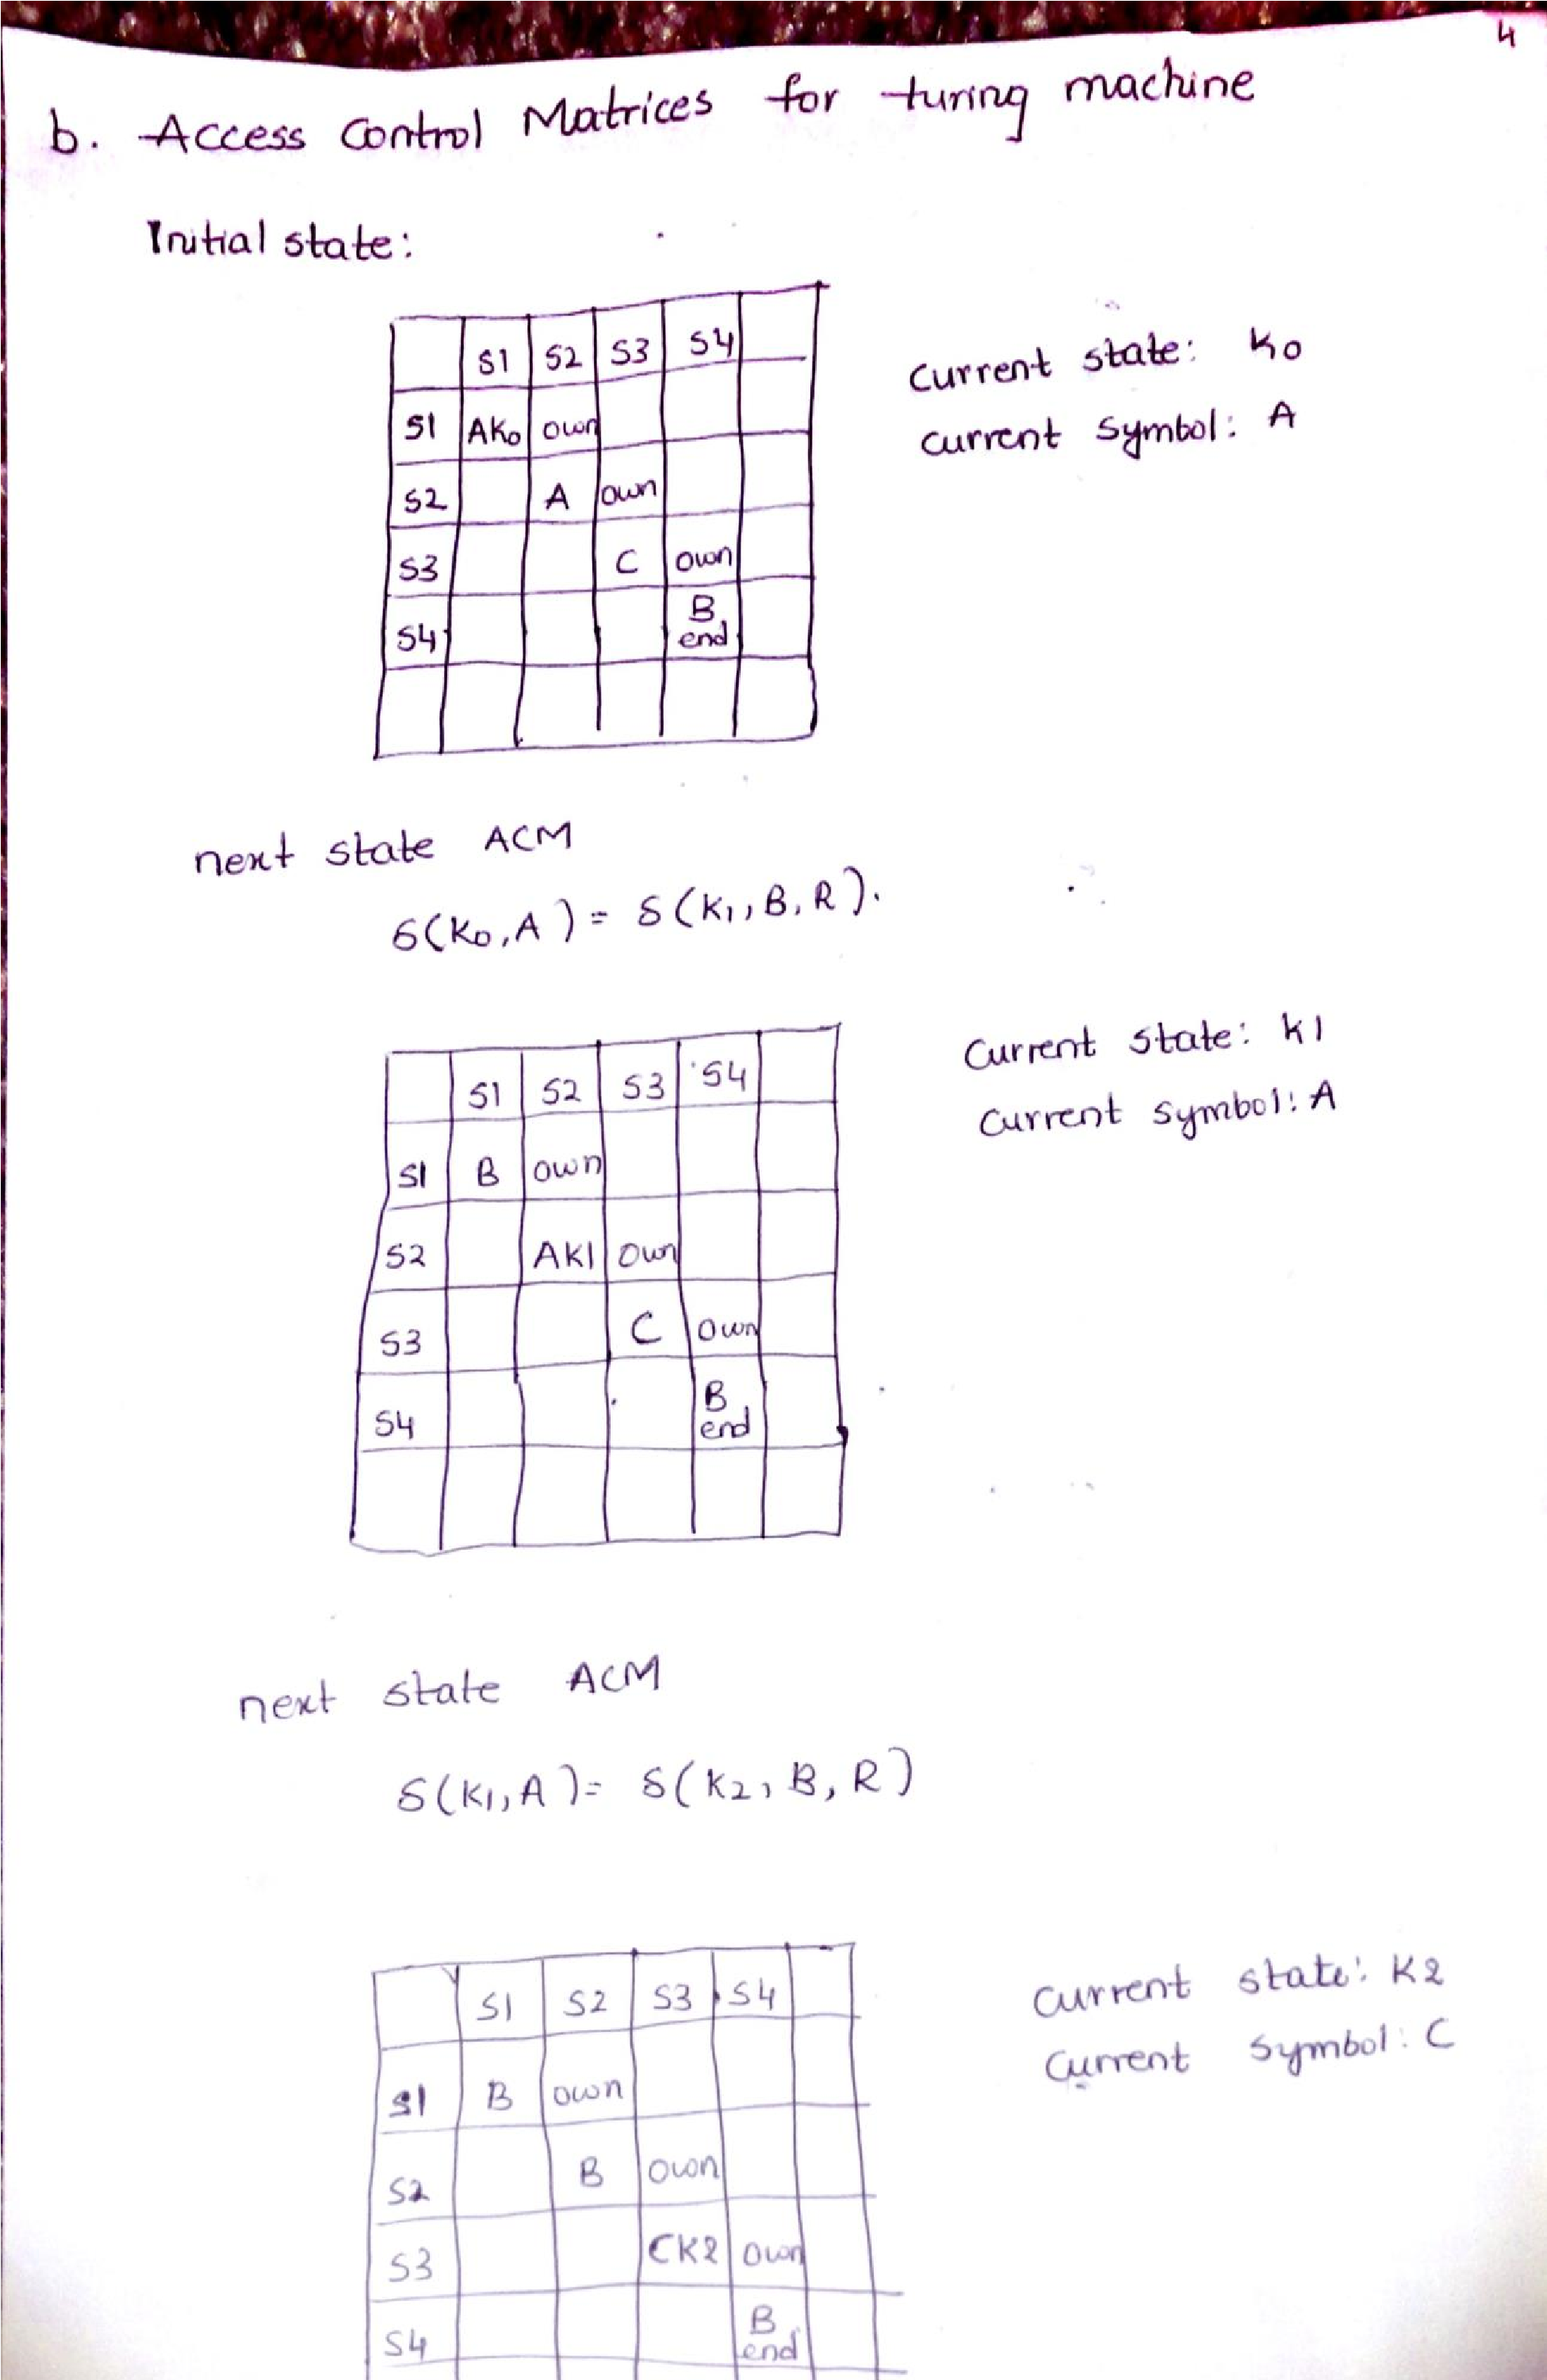 4
b. Access Control Matrices for turing machine
Initial state:
S1 S2 S3 S4
S1 AK0 own
S2 A own
S3 C own
S4 B end
Current state: K0
Current symbol: A
next state ACM
δ(K0, A) = δ(K1, B, R).
S1 S2 S3 S4
S1 B own
S2 AK1 own
S3 C own
S4 B end
Current state: K1
Current symbol: A
next state ACM
δ(K1, A) = δ(K2, B, R)
S1 S2 S3 S4
S1 B own
S2 B own
S3 CK2 own
S4 B end
Current state: K2
Current symbol: C